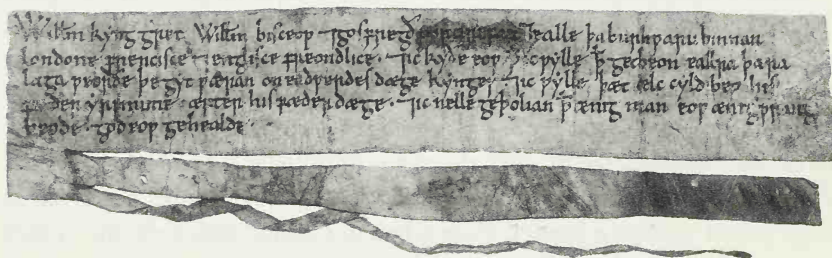 Ƿillm kyng gret Ƿillm bisceop ⁊ gosfregð portirefan ⁊ ealle þa burhƿaru binnan
londone frencisce ⁊ englisce freondlice · ⁊ ic kyðe eoƿ ꝥ ic ƿylle ꝥ get beon eallra þæra
laga ƿeorðe þe gyt ƿæran on eadƿerdes dæge kynges · ⁊ ic ƿylle þæt ælc cyld beo his
fæder yrfnume · æfter his fæder dæge · ⁊ ic nelle geþolian ꝥ ænig man eoƿ ænig ƿrang
beode · god eoƿ gehealde ·